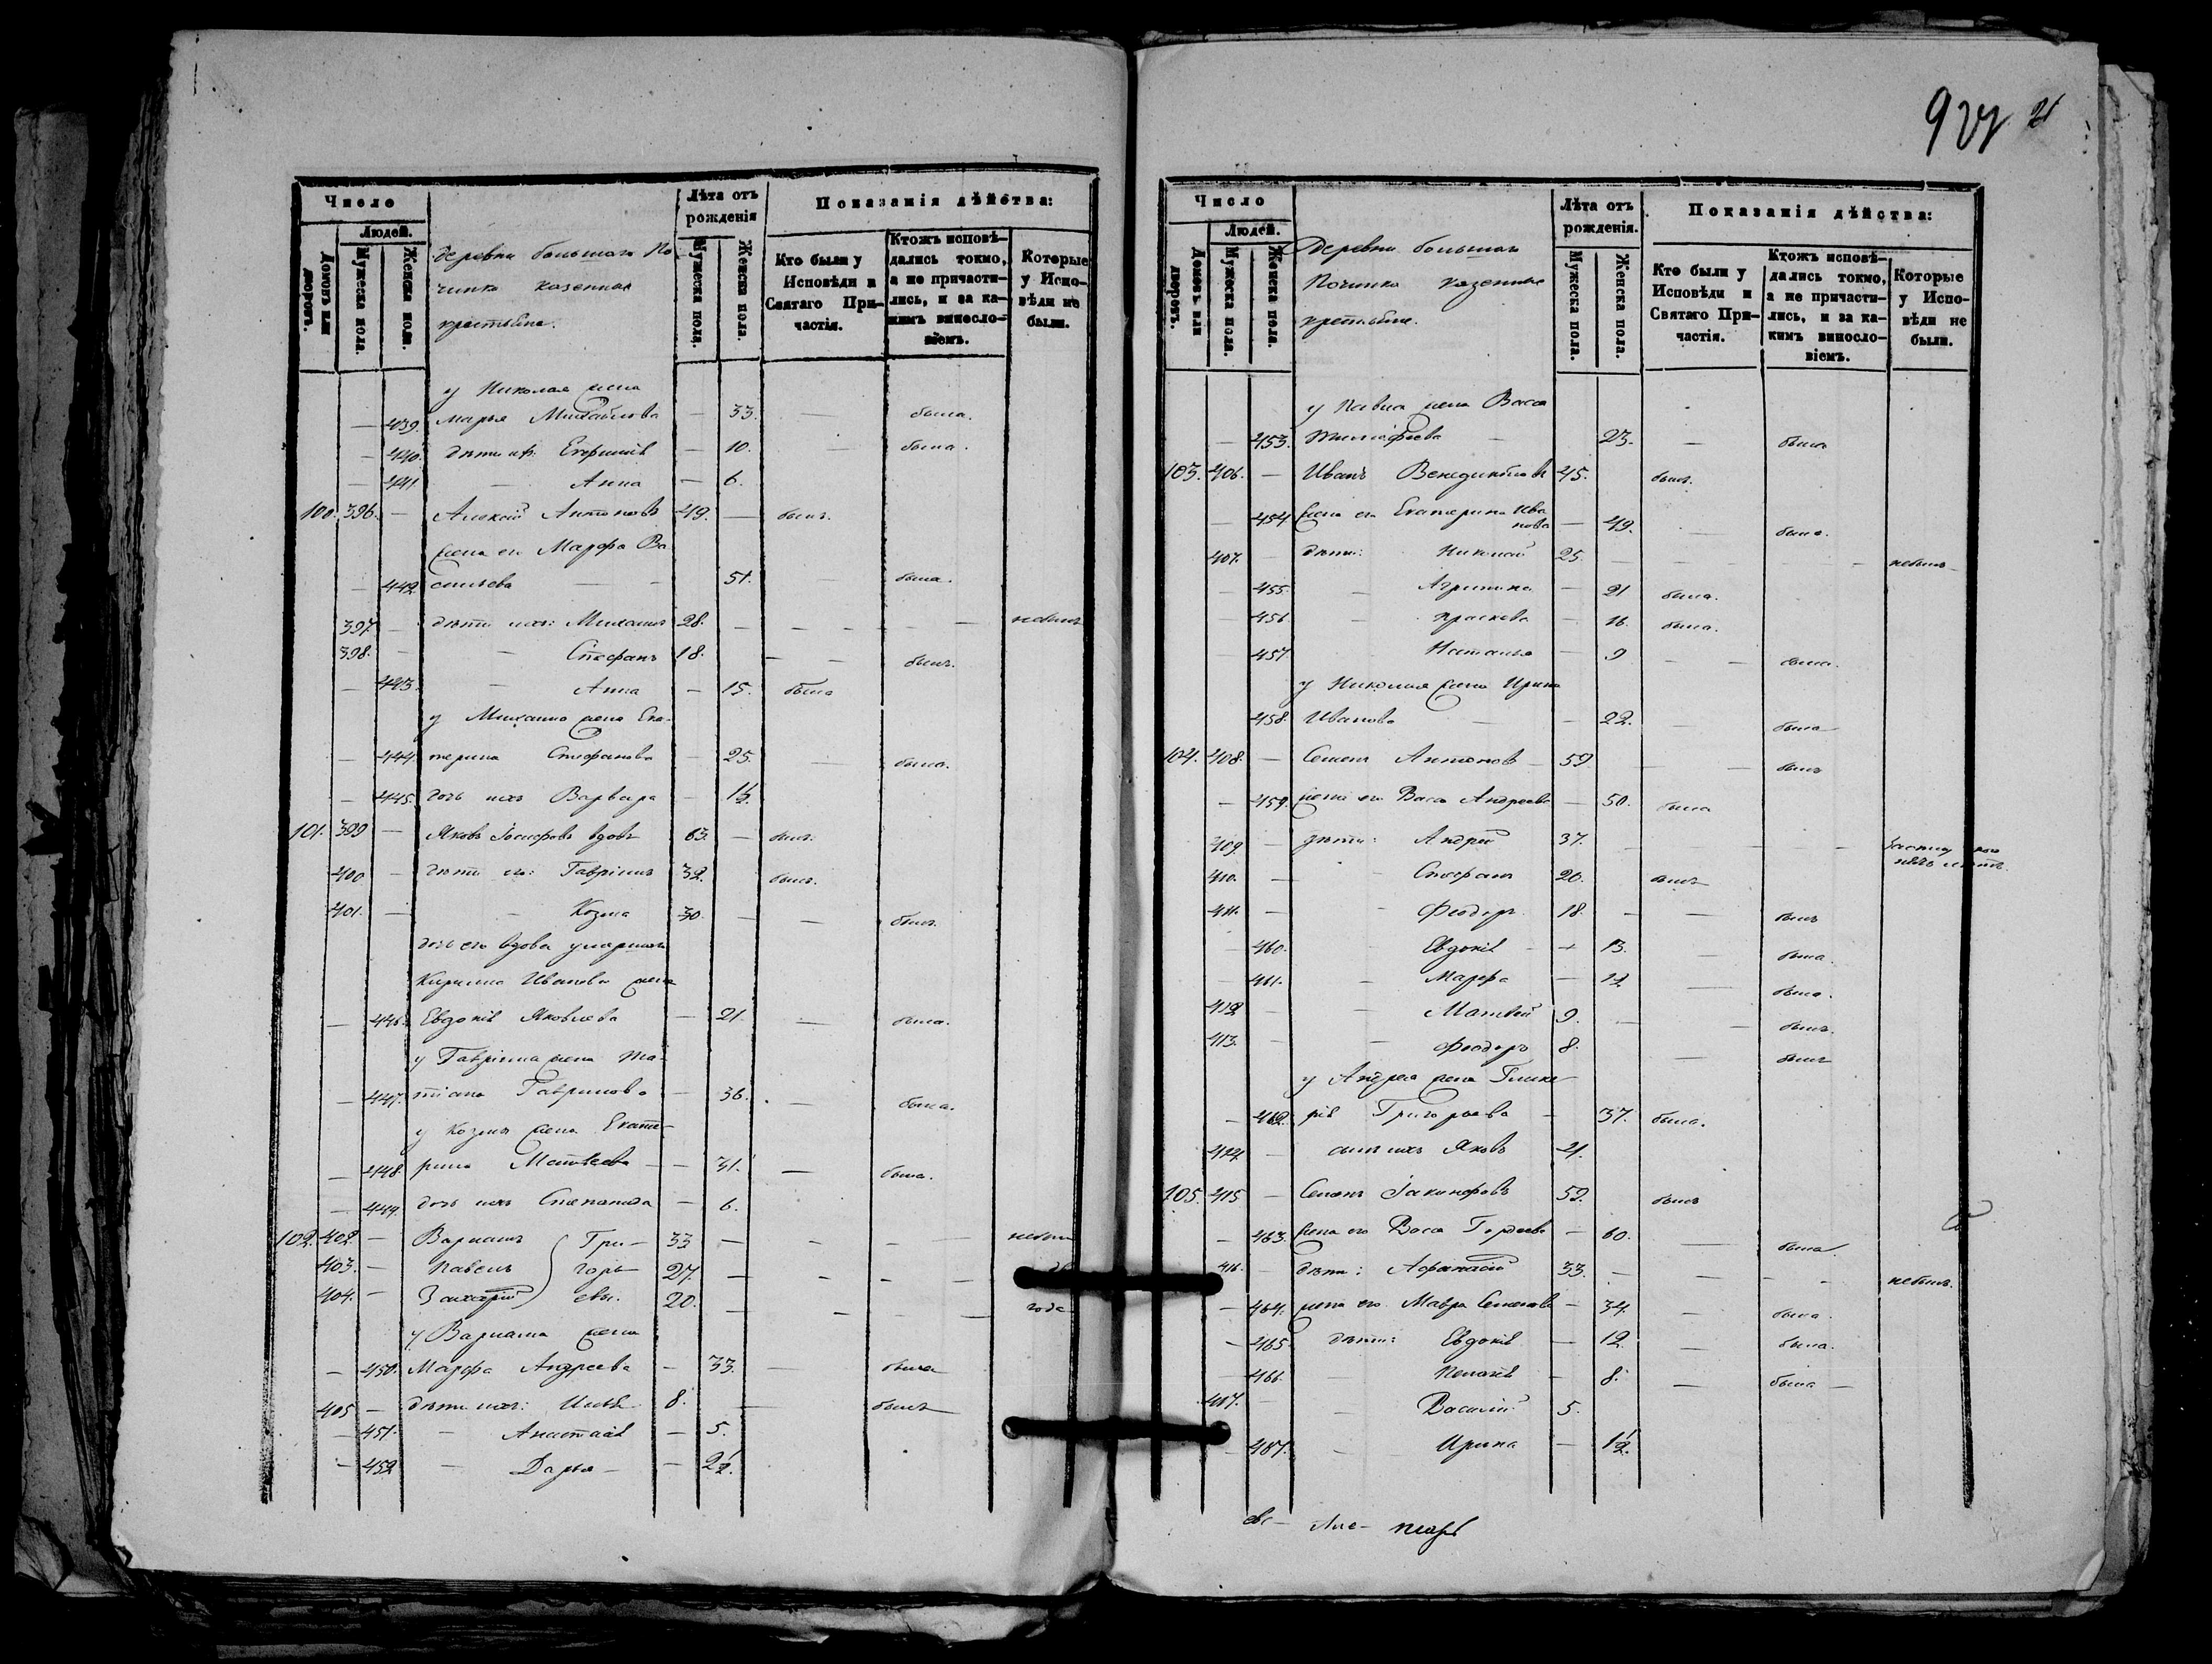 927
Число
Людей.
Домовъ или дворовъ.
Мужеска пола.
Женска пола.
деревни большаго По
чинка казенныя
крестьяне.
Лѣта отъ рожденія
Мужеска пола.
Женска пола.
Показанія дѣйства:
Кто были у Исповѣди и Святаго Причастія.
Ктожъ исповѣдались токмо, а не причастились, и за какимъ винословіемъ.
Которые у Исповѣди не были.
у Николая жена
— 439. Марья Михайлова — 33. была.
— 440. дѣти ихъ: Евфимія — 10. — была.
— 441. — Анна — 6.
100. 396. — Алексій Антоновъ 49. — былъ.
жена его Марфа Ва
— 442 сильева — — 51. была.
397. — дѣти ихъ: Михаилъ 28. — — — — небылъ
398. — Стефанъ 18. — — былъ.
— 443. — Анна — 15. была
у Михаила жена Ека-
— 444. терина Стефанова — 25. — была.
— 445. дочь ихъ Варвара — 1½
101. 399 — Яковъ Іосифовъ вдовъ 63. — былъ.
400 — дѣти его: Гавріилъ 32. былъ.
401. — — Козма 30. — — былъ.
дочь его вдова умершаго
Кирилла Иванова жена
— 446. Евдокія Яковлева — 21. — была.
у Гавріила жена Та-
— 447. тіана Гаврилова — 36. — была.
у Козмы жена Екате-
— 448. рина Матвѣева — 31. — была.
— 449. дочь ихъ Степанида — 6.
102. 402. — Варлаамъ Гри- 33 — — — —
403. — Павелъ горь- 27. — — — —
404. — Захарій евы. 20. — — — года
у Варлаама жена
— 450. Марфа Андреева — 33. — была
405 — дѣти ихъ: Илья 8. — былъ
— 451. — Анастасія — 5.
— 452 — Дарья — — 2½.
Число
Людей.
Домовъ или дворовъ.
Мужеска пола.
Женска пола.
Деревни большаго
Починка казенные
кретьяне.
Лѣта отъ рожденія.
Мужеска пола.
Женска пола.
Показанія дѣйства:
Кто были у Исповѣди и Святаго Причастія.
Ктожъ исповѣдались токмо, а не причастились, и за какимъ винословіемъ.
Которые у Исповѣди не были.
у Павла жена Васса
— 453. Тимофеева — 23. — была
103. 406. — Иванъ Венедиктовъ 45. былъ.
— 454 жена его Екатерина Ива
нова — 49. — была.
407. — дѣти: Николай 25. — — — — небылъ
— 455. — Агрипина — 21 была.
— 456 — Праскева — 16. была.
— 457 Наталья — 9 — — была.
у Николая жена Ирина
458. Иванова — — 22. — была
104. 408. — Семенъ Антоновъ 59. — — былъ
— 459. жена его Васса Андреева — 50. была
409. — дѣти: Андрей 37. — — —
410. — — Стефанъ 20. былъ
411. — Феодоръ 18. — — былъ
— 460. Евдокія — 13. — была.
— 461. — Марфа — 12 — была.
412 — Матвій 9. — — былъ.
413. — — Феодоръ 8. — былъ
у Андрея жена Глике
— 462. рія Григорьева — 37. была.
414 — сынъ ихъ Яковъ 4.
105. 415 — Семенъ Іакинфовъ 52. былъ
— 463. жена его Васса Гордеева — 60. — была.
416. — дѣти: Афанасій 33. — — — — небылъ.
— 464. жена его Мавра Семенова — 34. — была.
— 465 дѣти: Евдокія — 12. — была.
— 466. — Пелагія — 8. — была —
417. — — Василій 5.
— 467. — Ирина — 1½.